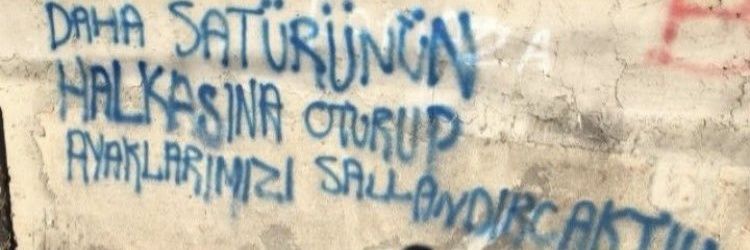 DAHA SATÜRÜNÜN
HALKASINA OTURUP
AYAKLARIMIZI SALLANDIRCAKTIK